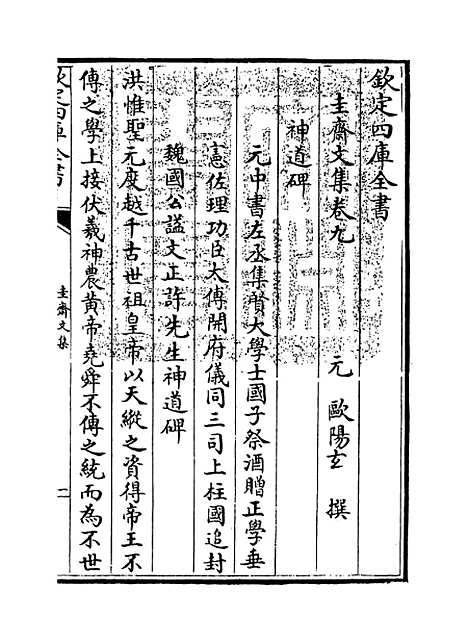 欽定四庫全書
圭齋文集卷九
元 歐陽玄 撰
神道碑
元中書左丞集賢大學士國子祭酒贈正學垂
憲佐理功臣太傅開府儀同三司上柱國追封
魏國公諡文正許先生神道碑
洪惟聖元度越千古世祖皇帝以天縱之資得帝王不
傳之學上接伏羲神農黃帝堯舜不傳之統而為不世
欽定四庫全書
圭齋文集